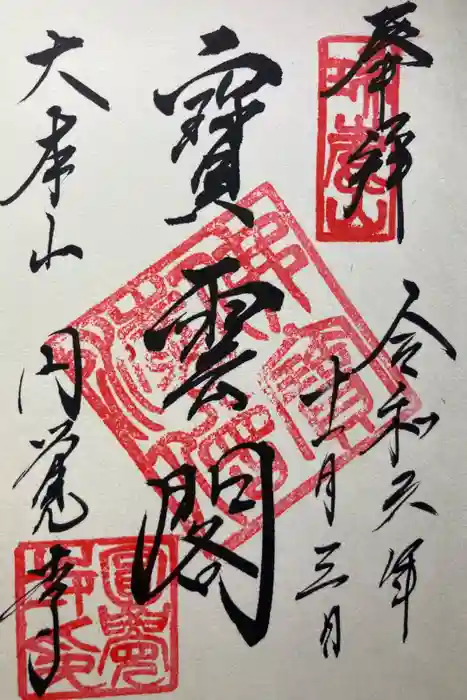 奉拝
瑞鹿山
令和六年
十一月三日
寶雲閣
大本山
円覚寺